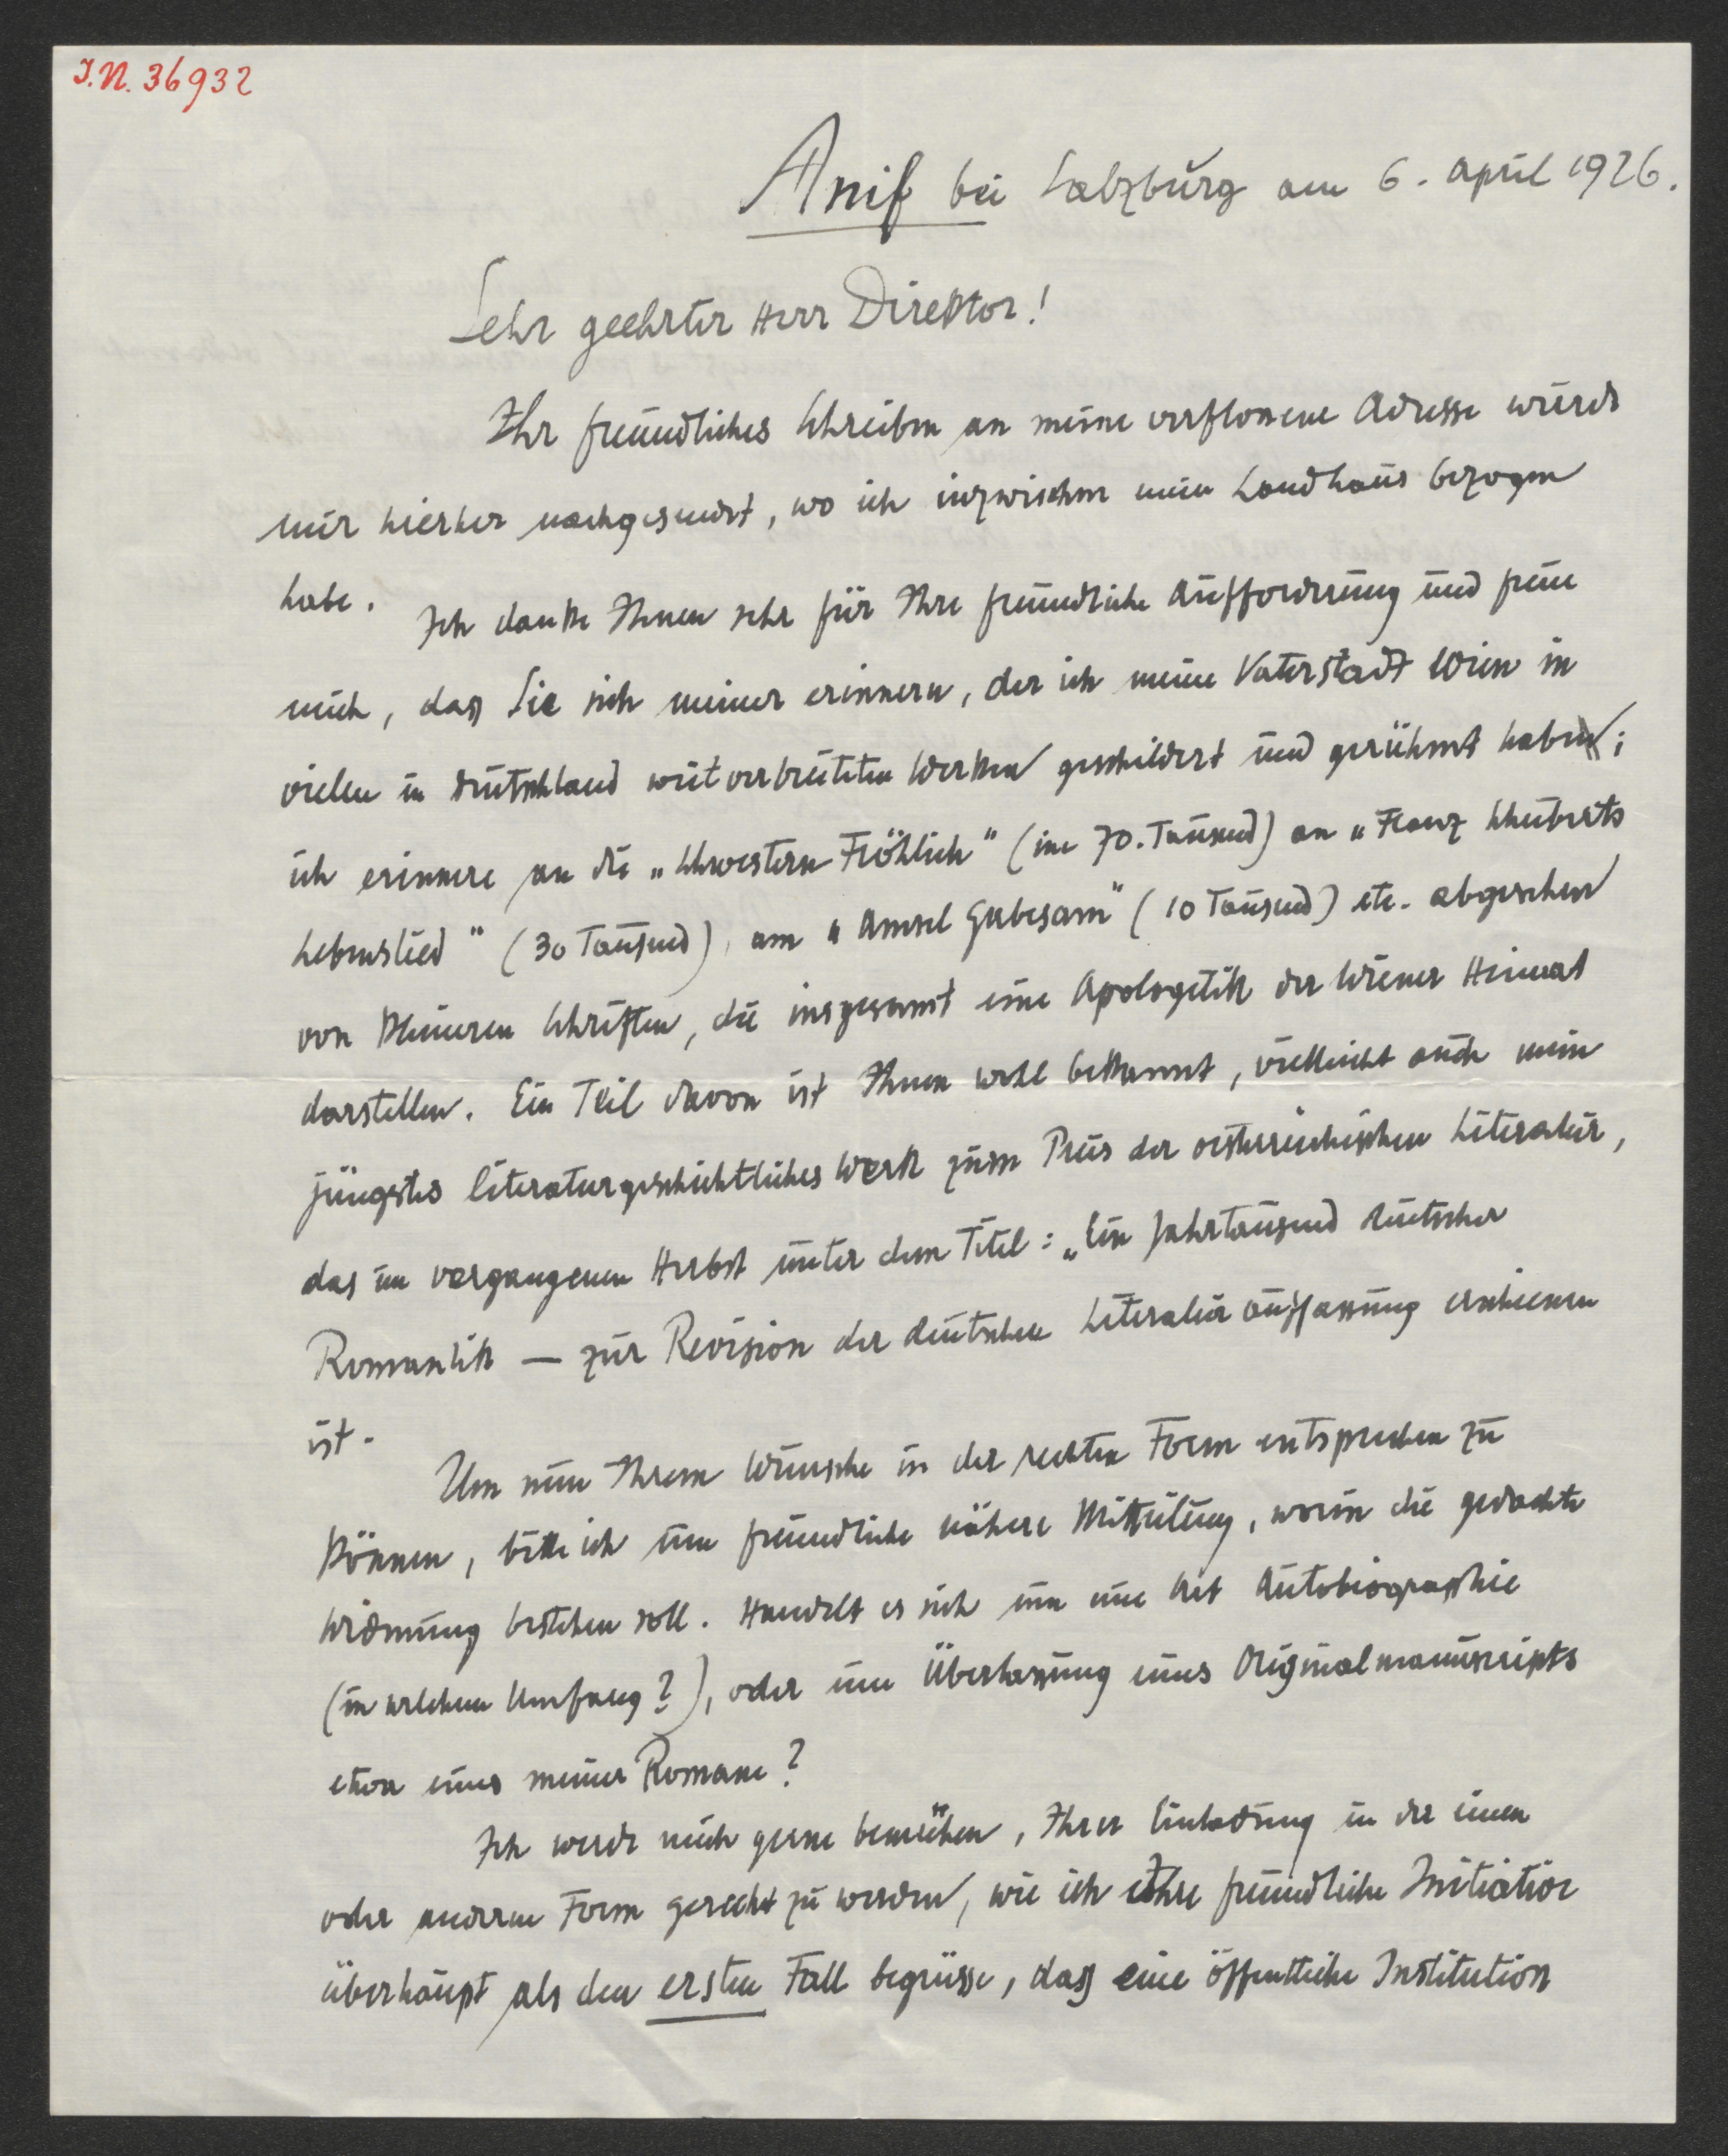 I.N. 36932
Anif bei Salzburg am 6. April 1926.
Sehr geehrter Herr Direktor!
Ihr freundliches Schreiben an meine verflossene Adresse wurde
mir hierher nachgesendet, wo ich inzwischen mein Landhaus bezogen
habe. Ich danke Ihnen sehr für Ihre freundliche Aufforderung und freue
mich, dass Sie sich meiner erinnern, der ich meine Vaterstadt Wien in
vielen in Deutschland weitverbreiteten Werken geschildert und gerühmt habe;
ich erinnere an die „Schwestern Fröhlich" (im 70. Tausend) an „Franz Schuberts
Lebenslied" (30 Tausend), am „Amsel Gabesam" (10 Tausend) etc. abgesehen
von kleineren Schriften, die insgesamt eine Apologetik der Wiener Heimat
darstellen. Ein Teil davon ist Ihnen wohl bekannt, vielleicht auch mein
jüngstes literaturgeschichtliches Werk zum Preis der oesterreichischen Literatur,
das im vergangenen Herbst unter dem Titel: „Ein Jahrtausend deutscher
Romantik — zur Revision der deutschen Literaturauffassung erschienen
ist.
Um nun Ihrem Wunsche in der rechten Form entsprechen zu
können, bitte ich um freundliche nähere Mitteilung, worin die gedachte
Widmung bestehen soll. Handelt es sich um eine Art Autobiographie
(in welchem Umfang?), oder um Überlassung eines Originalmanuscripts
etwa eines meiner Romane?
Ich werde mich gerne bemühen, Ihrer Einladung in der einen
oder anderen Form gerecht zu werden, wie ich Ihre freundliche Initiative
überhaupt als den ersten Fall begrüsse, dass eine öffentliche Institution